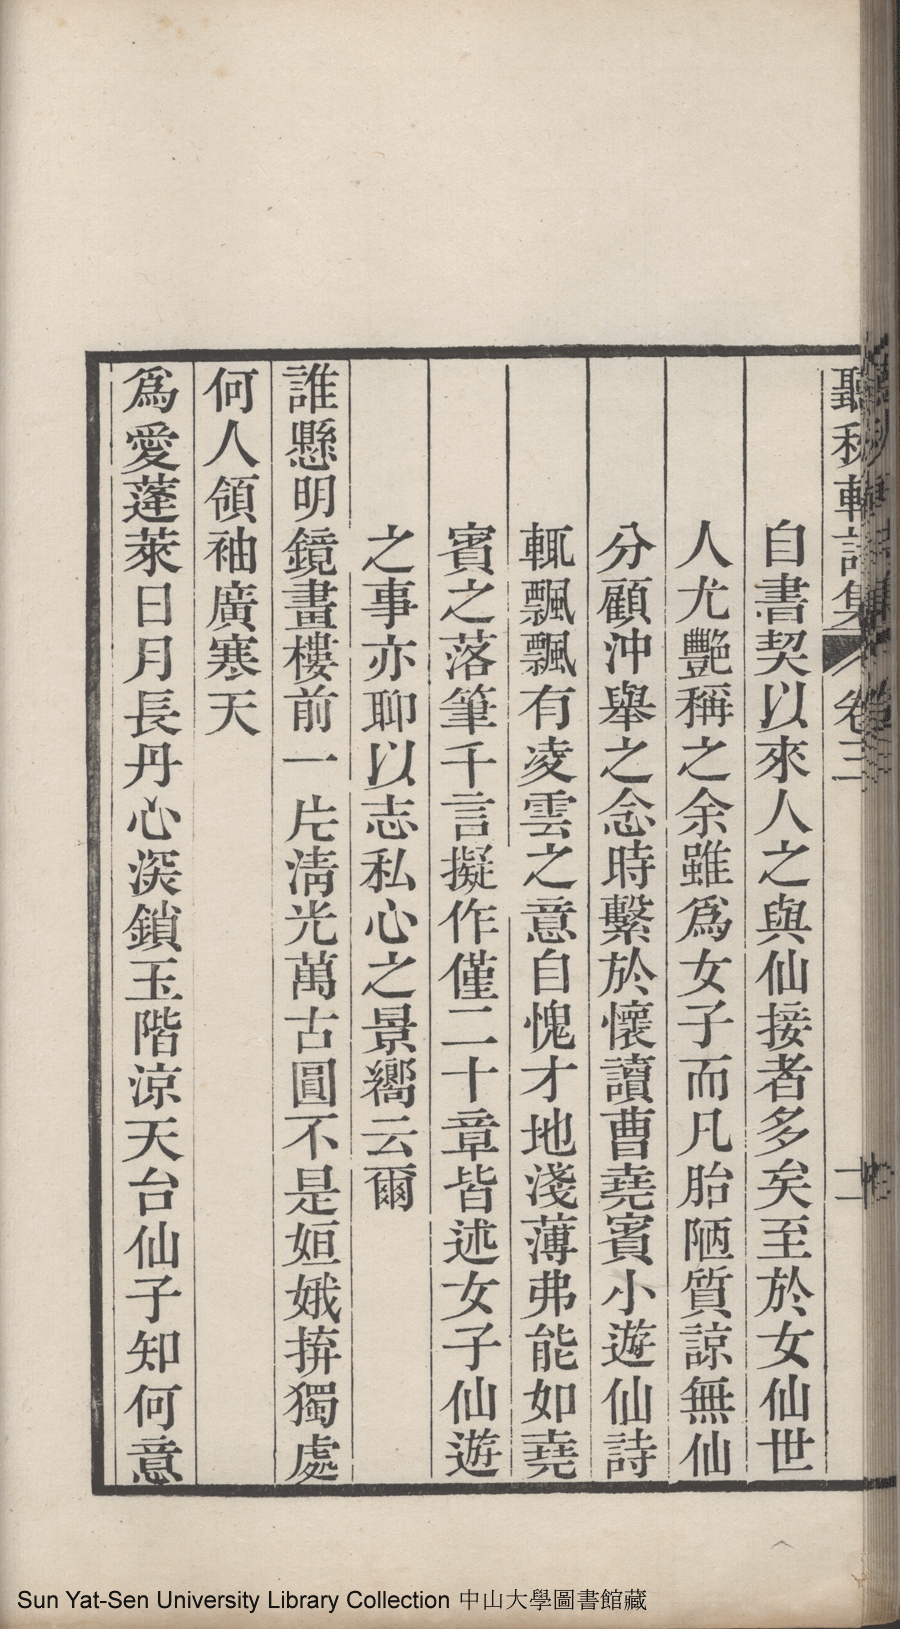 聽秋軒詩集 卷三 二
自書契以來人之與仙接者多矣至於女仙世
人尤艷稱之余雖為女子而凡胎陋質諒無仙
分顧沖舉之念時繫於懷讀曹堯賓小遊仙詩
輒飄飄有凌雲之意自愧才地淺薄弗能如堯
賓之落筆千言擬作僅二十章皆述女子仙遊
之事亦聊以志私心之景嚮云爾
誰懸明鏡畫樓前一片清光萬古圓不是姮娥拚獨處
何人領袖廣寒天
為愛蓬萊日月長丹心深鎖玉階涼天台仙子知何意
Sun Yat-Sen University Library Collection 中山大學圖書館藏